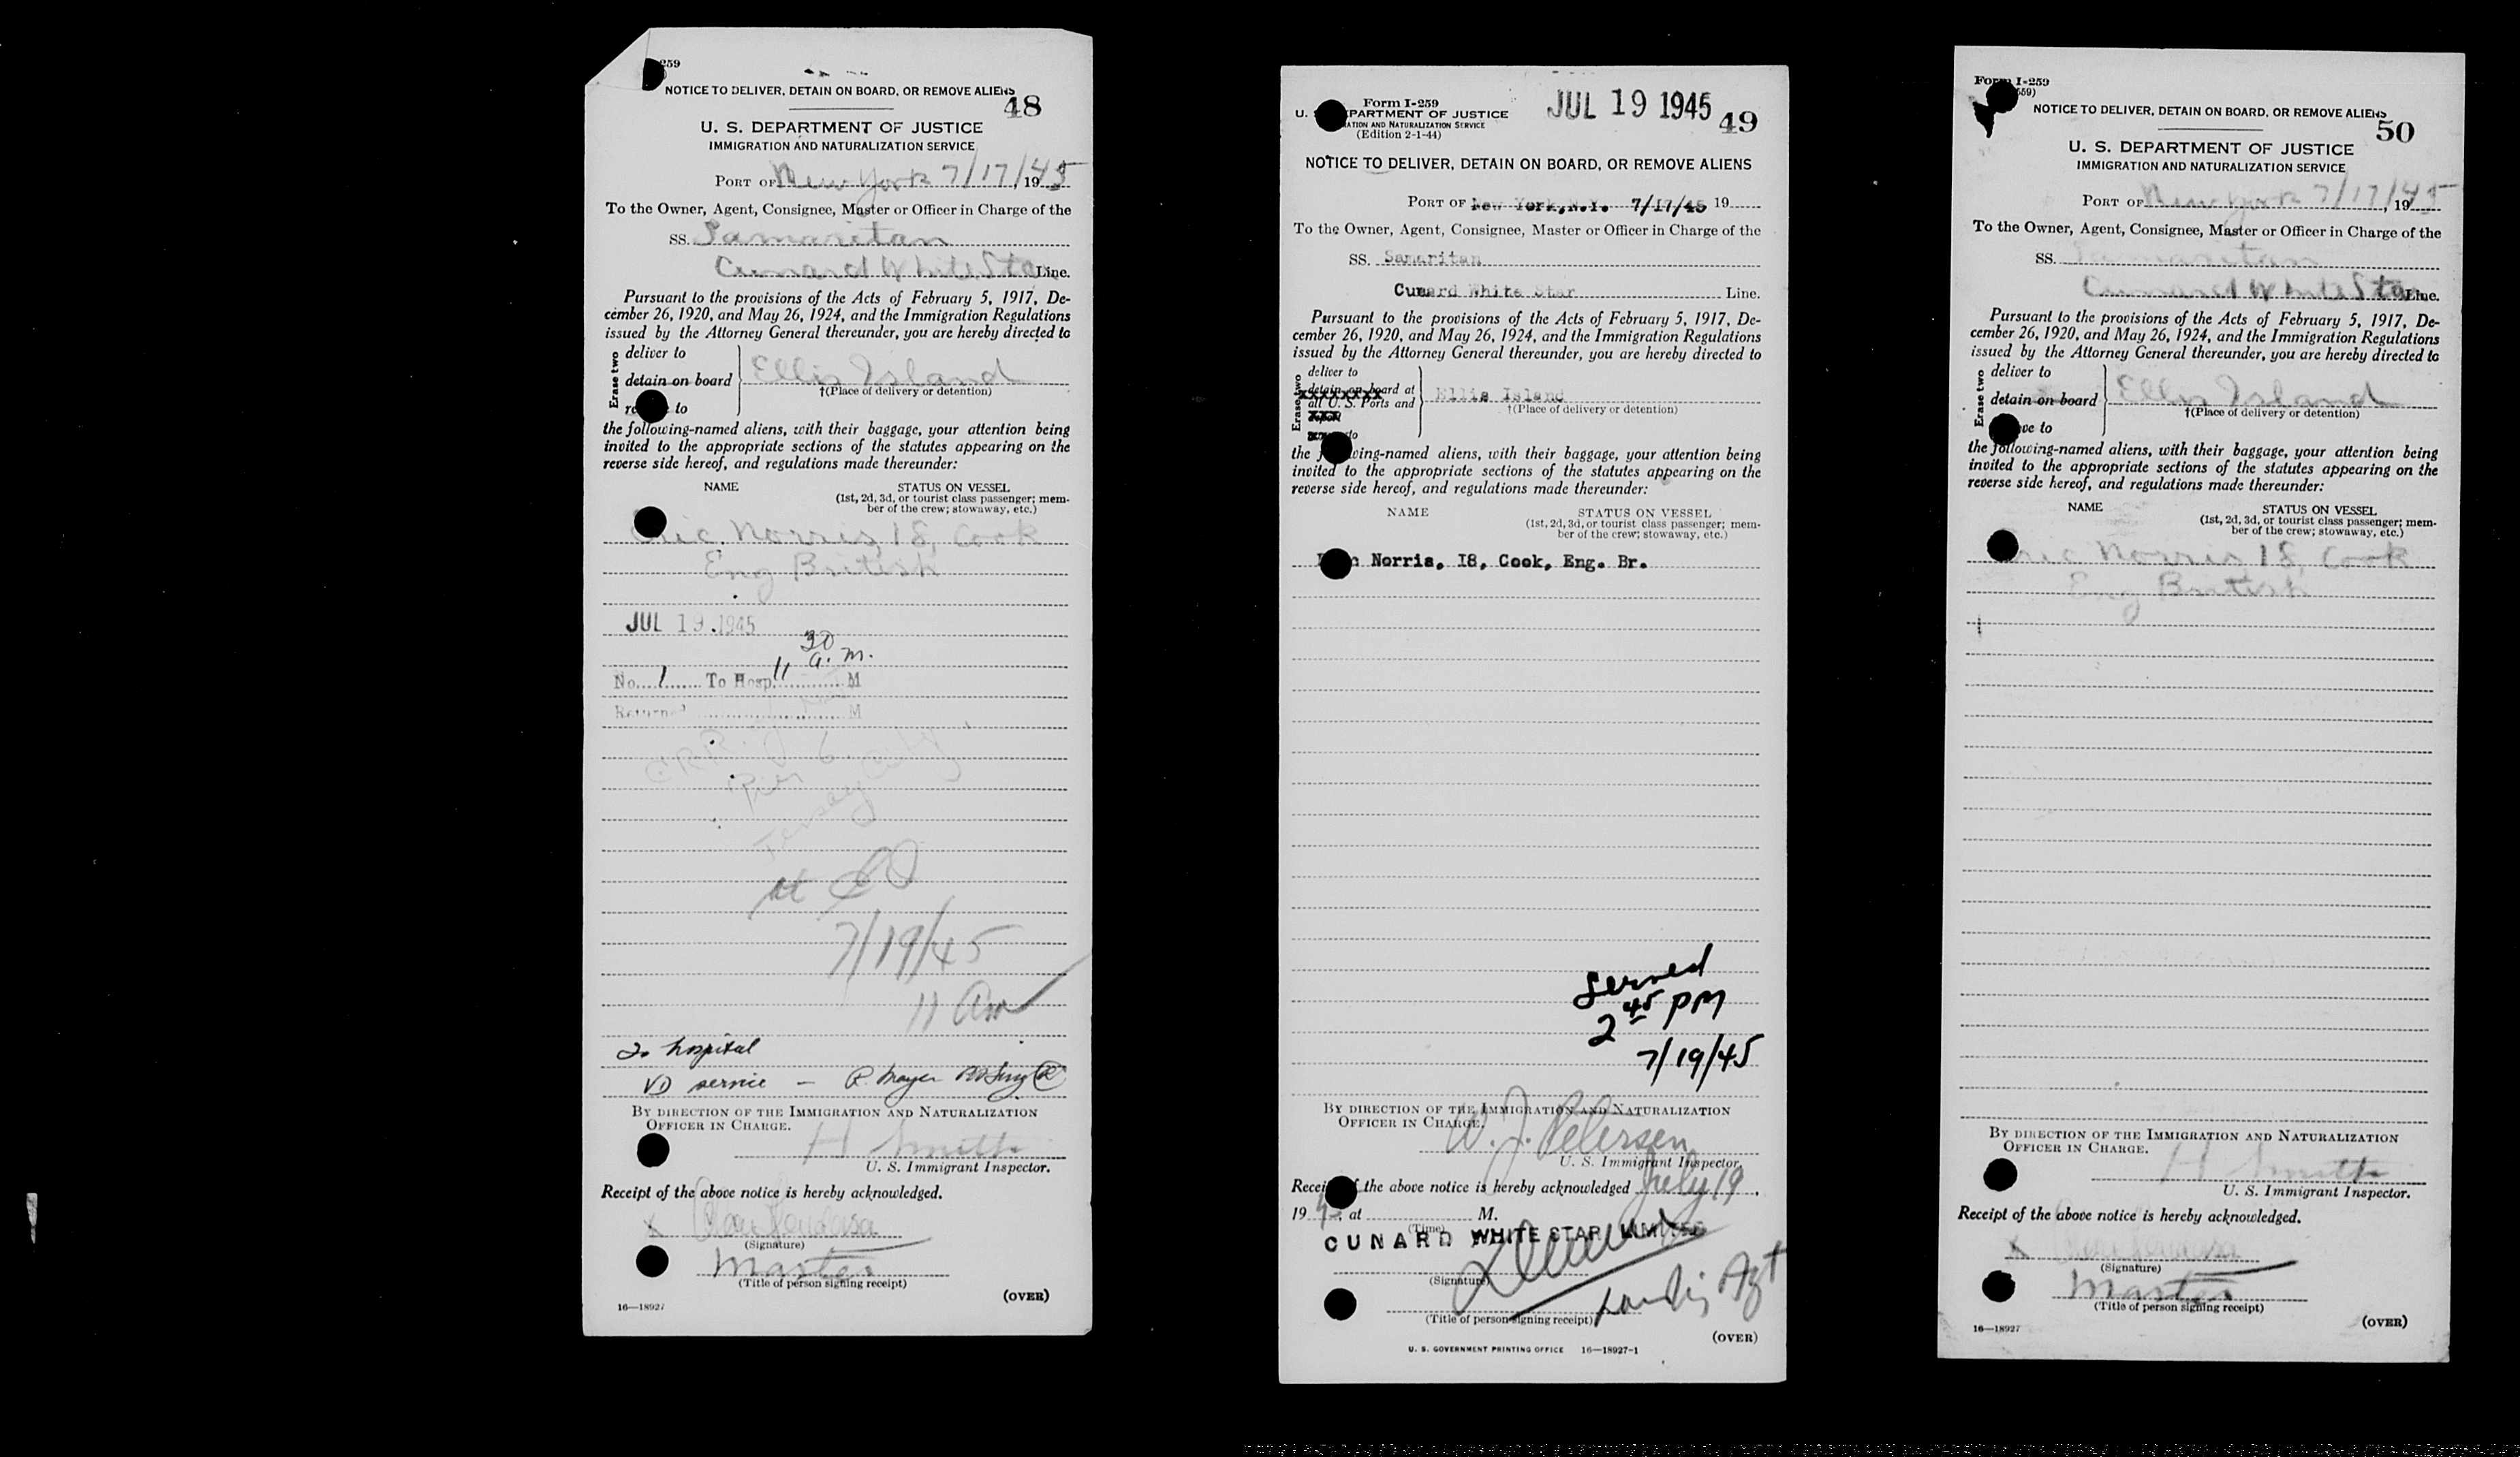 259
NOTICE TO DELIVER, DETAIN ON BOARD, OR REMOVE ALIENS
48
U. S. DEPARTMENT OF JUSTICE
IMMIGRATION AND NATURALIZATION SERVICE
PORT OF New York 7/17/45, 19
To the Owner, Agent, Consignee, Master or Officer in Charge of the
SS. Samaritan
Cunard White Star Line.
Pursuant to the provisions of the Acts of February 5, 1917, De-
cember 26, 1920, and May 26, 1924, and the Immigration Regulations
issued by the Attorney General thereunder, you are hereby directed to
Erase two
deliver to
detain on board
to
Ellis Island
†(Place of delivery or detention)
the following-named aliens, with their baggage, your attention being
invited to the appropriate sections of the statutes appearing on the
reverse side hereof, and regulations made thereunder:
NAME
STATUS ON VESSEL
(1st, 2d, 3d, or tourist class passenger; mem-
ber of the crew; stowaway, etc.)
Eric Norris, 18, Cook
Eng British
JUL 19 1945
30
a.m.
No. 1 To Hosp. 11 M
Returned M
Pier 6
Jersey City
at
7/19/45
11 am
To hospital
VD service — R. Mayer
BY DIRECTION OF THE IMMIGRATION AND NATURALIZATION
OFFICER IN CHARGE.
H Smith
U. S. Immigrant Inspector.
Receipt of the above notice is hereby acknowledged.
x
(Signature)
Master
(Title of person signing receipt)
(OVER)
16—18927
Form I-259
U. PARTMENT OF JUSTICE
ATION AND NATURALIZATION SERVICE
(Edition 2-1-44)
JUL 19 1945
49
NOTICE TO DELIVER, DETAIN ON BOARD, OR REMOVE ALIENS
PORT OF New York, N.Y. 7/17/45 19
To the Owner, Agent, Consignee, Master or Officer in Charge of the
SS. Samaritan
Cunard White Star Line.
Pursuant to the provisions of the Acts of February 5, 1917, De-
cember 26, 1920, and May 26, 1924, and the Immigration Regulations
issued by the Attorney General thereunder, you are hereby directed to
Erase two
deliver to
detain on board at
all U. S. Ports and
to
Ellis Island
†(Place of delivery or detention)
the following-named aliens, with their baggage, your attention being
invited to the appropriate sections of the statutes appearing on the
reverse side hereof, and regulations made thereunder:
NAME
STATUS ON VESSEL
(1st, 2d, 3d, or tourist class passenger; mem-
ber of the crew; stowaway, etc.)
Norris, 18, Cook, Eng. Br.
Served
2 45 PM
7/19/45
BY DIRECTION OF THE IMMIGRATION AND NATURALIZATION
OFFICER IN CHARGE.
W. J. Petersen
U. S. Immigrant Inspector.
Receipt of the above notice is hereby acknowledged July 19,
19 45, at M.
(Time)
CUNARD WHITE STAR LIMITED
(Signature)
Landing Agt
(Title of person signing receipt)
(OVER)
U. S. GOVERNMENT PRINTING OFFICE 16—18927-1
Form I-259
559)
NOTICE TO DELIVER, DETAIN ON BOARD, OR REMOVE ALIENS
50
U. S. DEPARTMENT OF JUSTICE
IMMIGRATION AND NATURALIZATION SERVICE
PORT OF New York 7/17/45, 19
To the Owner, Agent, Consignee, Master or Officer in Charge of the
SS. Samaritan
Cunard White Star Line.
Pursuant to the provisions of the Acts of February 5, 1917, De-
cember 26, 1920, and May 26, 1924, and the Immigration Regulations
issued by the Attorney General thereunder, you are hereby directed to
Erase two
deliver to
detain on board
ve to
Ellis Island
†(Place of delivery or detention)
the following-named aliens, with their baggage, your attention being
invited to the appropriate sections of the statutes appearing on the
reverse side hereof, and regulations made thereunder:
NAME
STATUS ON VESSEL
(1st, 2d, 3d, or tourist class passenger; mem-
ber of the crew; stowaway, etc.)
Eric Norris 18, Cook
Eng British
BY DIRECTION OF THE IMMIGRATION AND NATURALIZATION
OFFICER IN CHARGE.
H Smith
U. S. Immigrant Inspector.
Receipt of the above notice is hereby acknowledged.
x
(Signature)
Master
(Title of person signing receipt)
(OVER)
16—18927